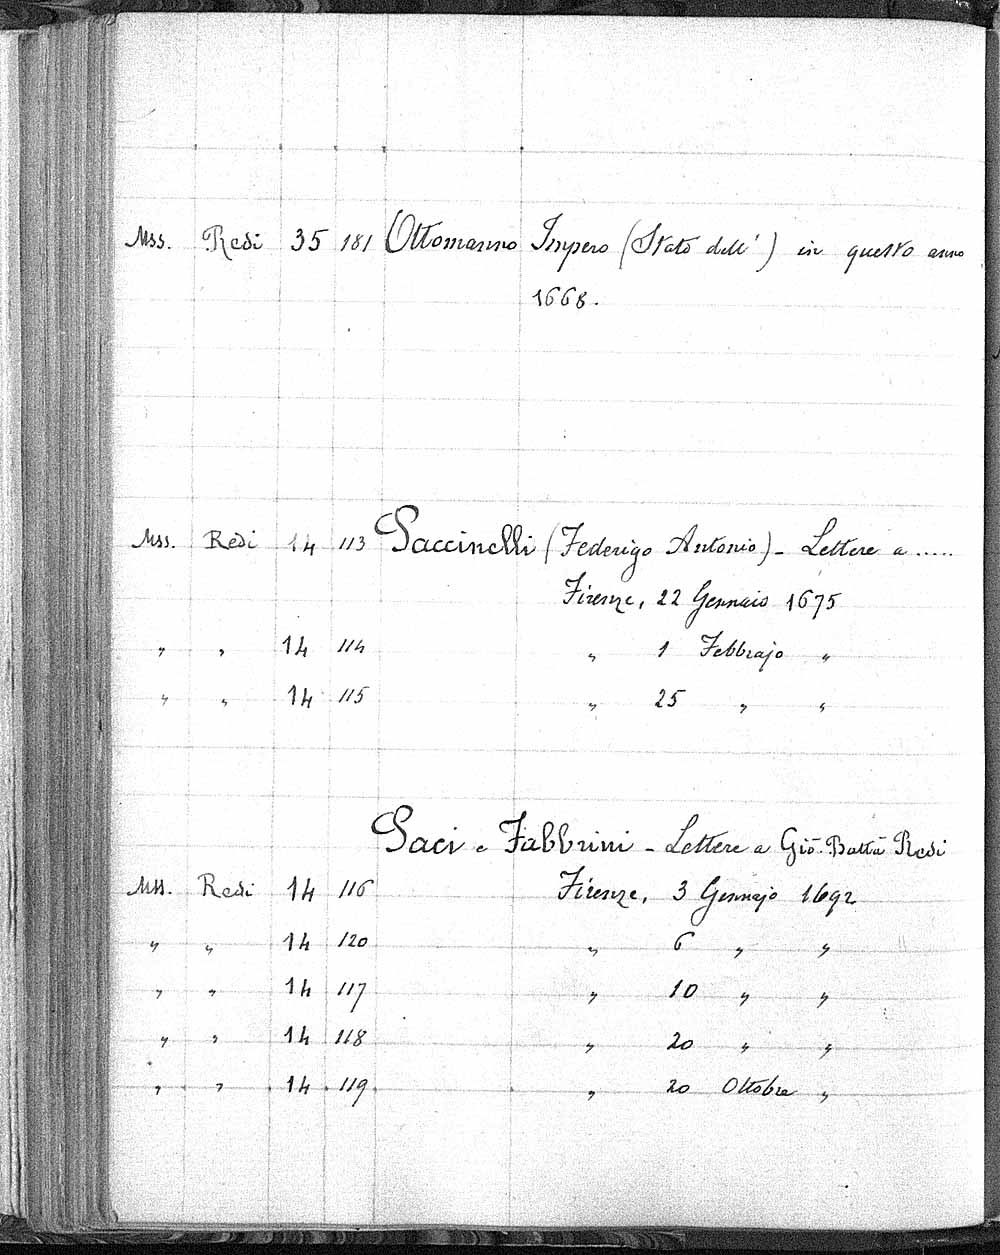 Mss. Redi 35 181 Ottomanno Impero (Stato dell') in questo anno
1668.
Mss. Redi 14 113 Paccinelli (Federigo Antonio) - Lettere a .....
Firenze, 22 Gennaio 1675
" " 14 114 " 1 Febbrajo "
" " 14 115 " 25 " "
Paci e Fabbrini - Lettere a Gio. Batta Redi
Mss. Redi 14 116 Firenze, 3 Gennajo 1692
" " 14 120 " 6 " "
" " 14 117 " 10 " "
" " 14 118 " 20 " "
" " 14 119 " 20 Ottobre "